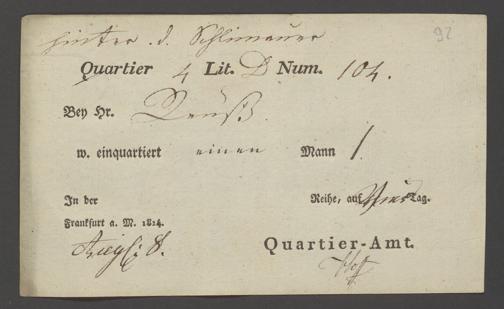 92
hinter d. Schlimauer
Quartier 4 Lit. D Num. 104.
Bey Hr.
w. einquartiert einen Mann 1
In der Reihe, auf Tag.
Frankfurt a. M. 1814.
Quartier-Amt.